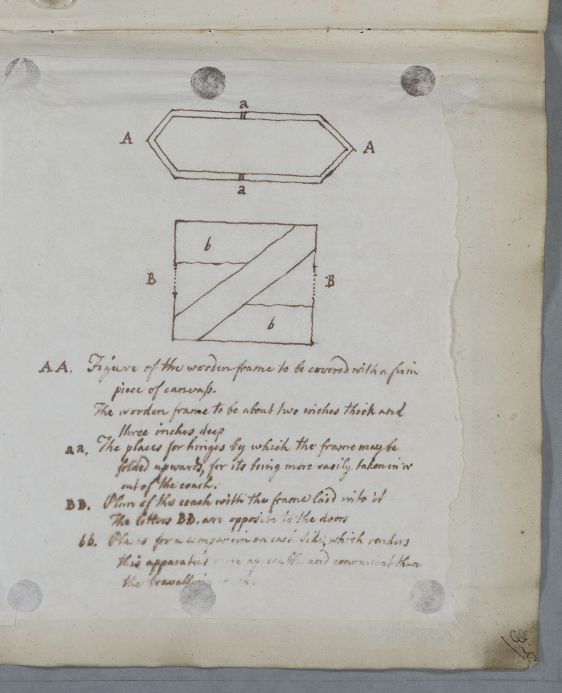 a
A
A
a
b
B
B
b
AA. Figure of the wooden frame to be covered with a firm
piece of canvass.
The wooden frame to be about two inches thick and
three inches deep
aa. The places for hinges by which the frame may be
folded upwards, for its being more easily taken in or
out of the coach.
BB. Plan of the coach with the frame laid into it
The letters BB. are opposite to the doors
bb. Places for a companion on each side, which renders
this apparatus more agreeable and convenient than
the travelling